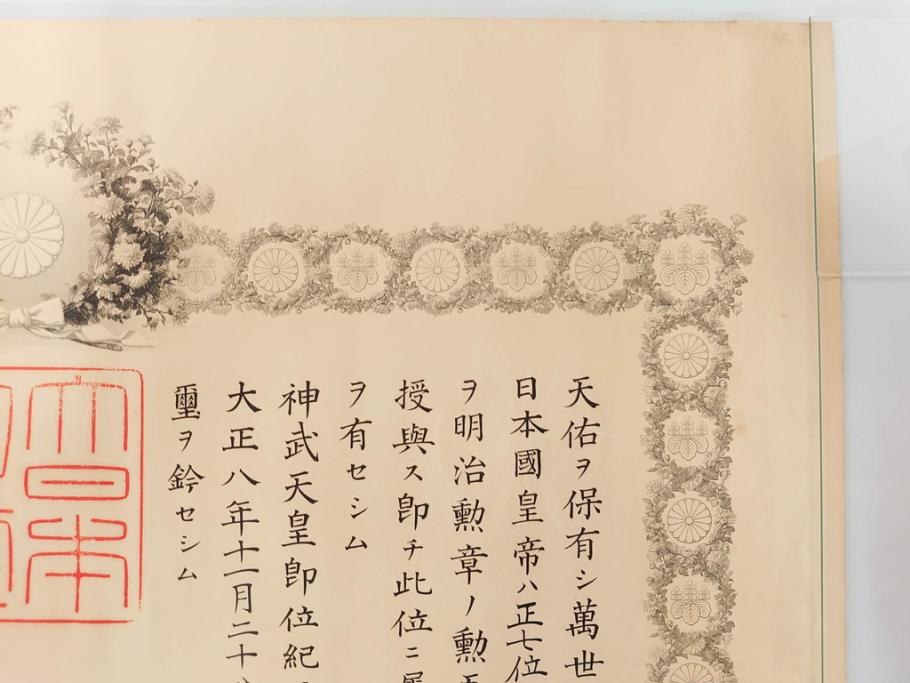 天佑ヲ保有シ萬世
日本國皇帝ハ正七位
ヲ明治勲章ノ勲
授與ス即チ此位ニ
ヲ有セシム
神武天皇即位紀
大正八年十一月二十
璽ヲ鈐セシム
大日本